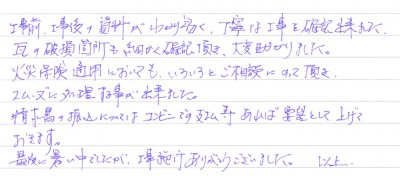 工事前、工事後の資料がわかり易く、丁寧な工事を確認出来ました。
瓦の破損箇所も細かく確認頂き、大変助かりました。
火災保険適用においても、いろいろとご相談にのって頂き、
スムーズに処理する事が出来ました。
精末書の振込については コンビニでの支払等 あれば要望として上げて
おきます。
最後に暑い中でしたが、工事施行ありがとうございました。 以上